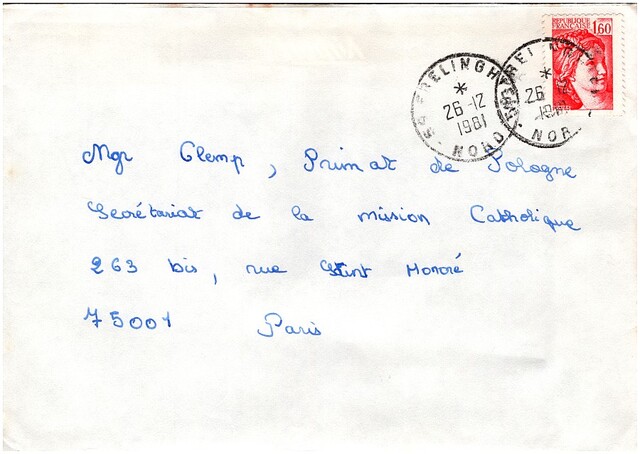 REPUBLIQUE
FRANÇAISE 1,60
59 FRELINGH
26-12
1981
NORD
26-12
1981
NOR
Mgr Glemp, Primat de Pologne
Secrétariat de la mission Catholique
263 bis, rue Saint Honoré
75001 Paris